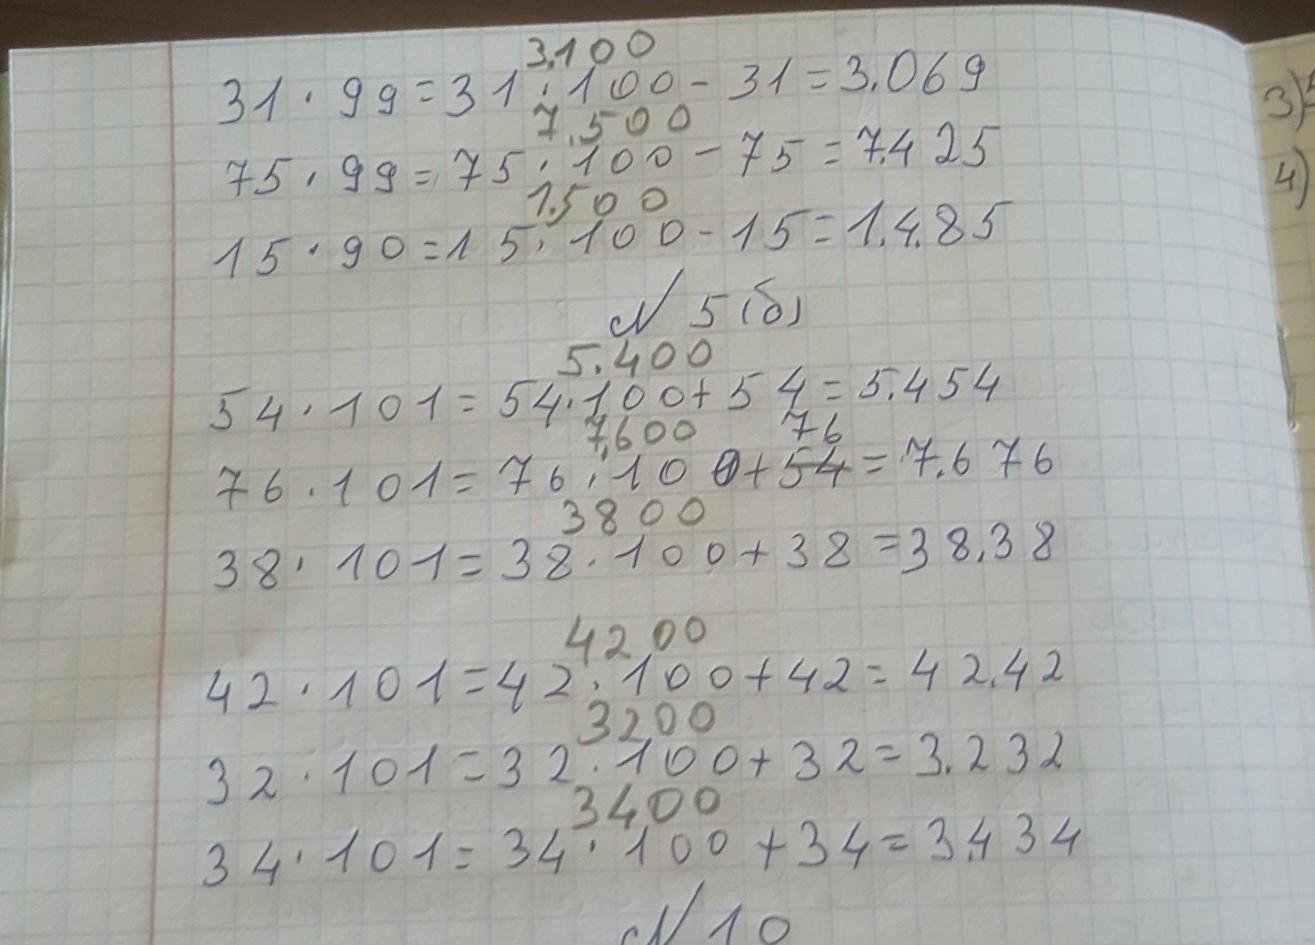 3.100
31 · 99 = 31 · 100 - 31 = 3.069
7.500
75 · 99 = 75 · 100 - 75 = 7.425
1.500
15 · 90 = 15 · 100 - 15 = 1.4.85
N 5 (б)
5.400
54 · 101 = 54 · 100 + 54 = 5.454
7.600 76
76 · 101 = 76 · 100 + 54 = 7.676
3800
38 · 101 = 38 · 100 + 38 = 38.38
4200
42 · 101 = 42 · 100 + 42 = 42.42
3200
32 · 101 = 32 · 100 + 32 = 3.232
3400
34 · 101 = 34 · 100 + 34 = 3.434
N 10
3)
4)